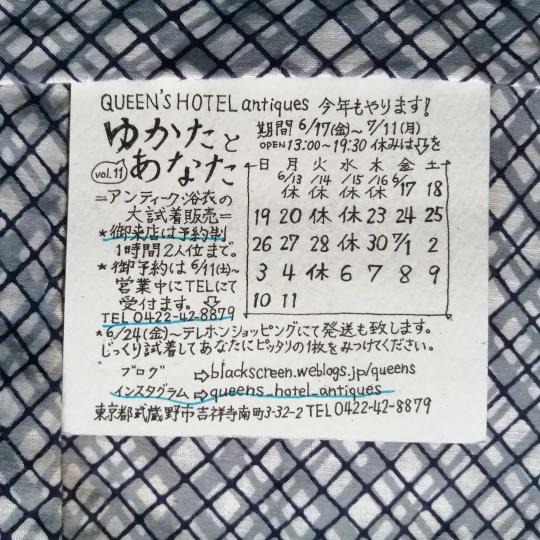 QUEEN'S HOTEL antiques 今年もやります!
ゆかたと
あなた
vol.11
期間 6/17(金)~7/11(月)
OPEN 13:00~19:30 休みは⇩を
=アンティーク浴衣の
大試着販売=
*御来店は予約制
1時間2人位まで。
*御予約は6/11(土)~
営業中にTELにて
受付ます。⇩
TEL 0422-42-8879
日 月 火 水 木 金 土
6/13 /14 /15 /16 6/
休 休 休 休 17 18
19 20 休 休 23 24 25
26 27 28 休 30 7/1 2
3 4 休 6 7 8 9
10 11
*6/24(金)~テレホンショッピングにて発送も致します。
じっくり試着してあなたにピッタリの1枚をみつけてください。
ブログ ⇨blackscreen.weblogs.jp/queens
インスタグラム⇨queens_hotel_antiques
東京都武蔵野市吉祥寺南町3-32-2 TEL0422-42-8879